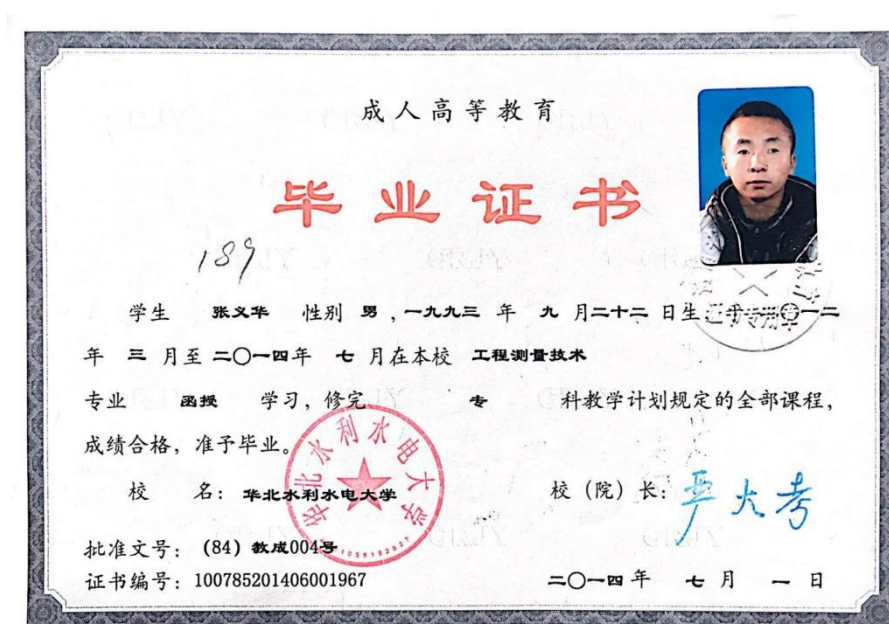 成人高等教育
毕业证书
189
学生 张义华 性别 男 ,一九九三 年 九 月二十二 日生,于二〇一二
年 三 月至 二〇一四年 七 月在本校 工程测量技术
专业 函授 学习,修完 专 科教学计划规定的全部课程,
成绩合格,准予毕业。
华北水利水电大学
校 名:华北水利水电大学
校(院)长:严大考
批准文号:(84)教成004号
证书编号:100785201406001967
二〇一四年 七 月 一 日